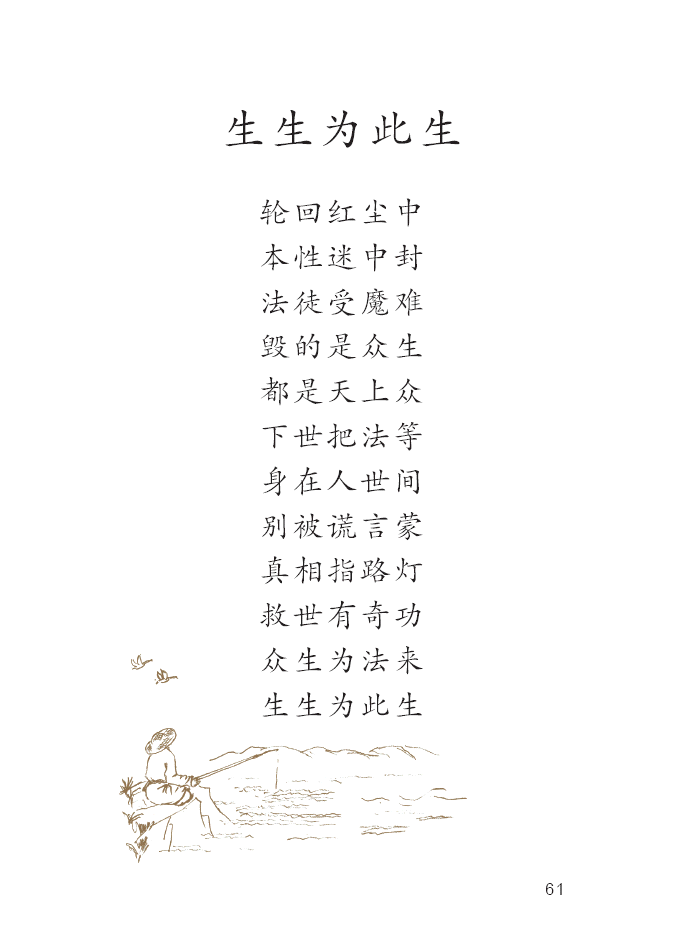 生生为此生
轮回红尘中
本性迷中封
法徒受魔难
毁的是众生
都是天上众
下世把法等
身在人世间
别被谎言蒙
真相指路灯
救世有奇功
众生为法来
生生为此生
61